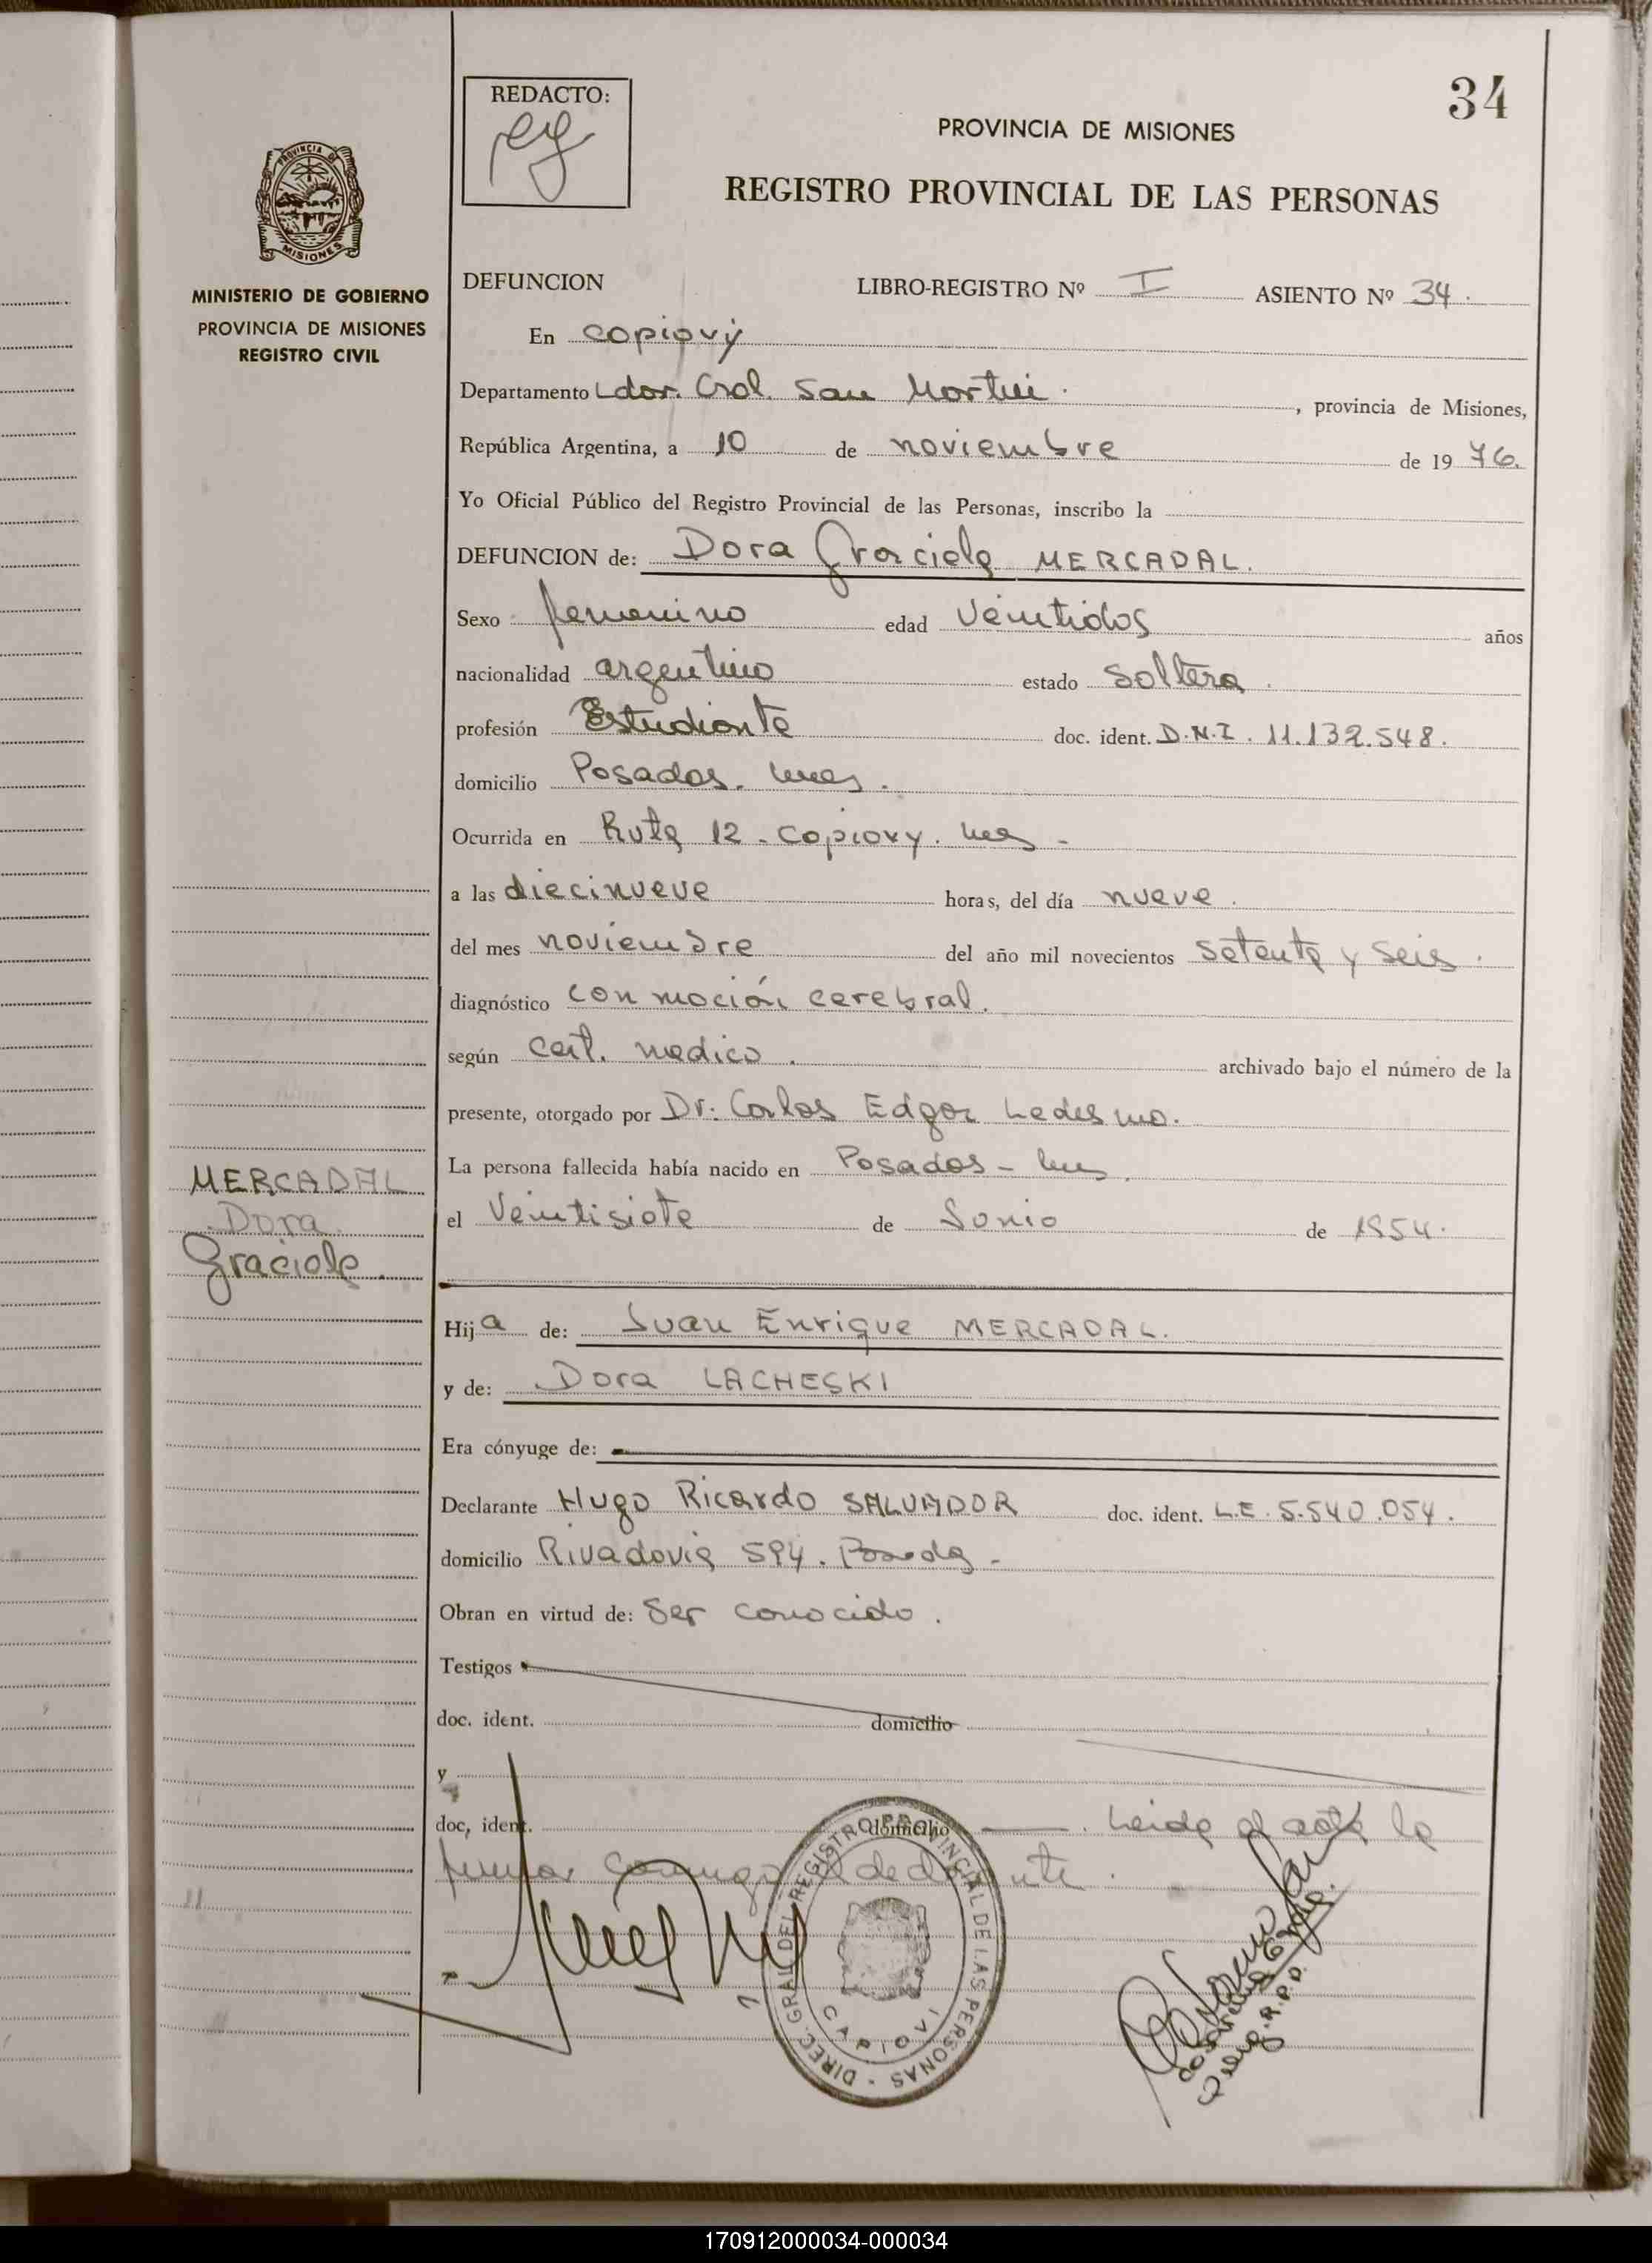 34
REDACTO:
PROVINCIA DE MISIONES
REGISTRO PROVINCIAL DE LAS PERSONAS
PROVINCIA DE
MISIONES
MINISTERIO DE GOBIERNO
PROVINCIA DE MISIONES
REGISTRO CIVIL
DEFUNCION LIBRO-REGISTRO Nº I ASIENTO Nº 34.
En Capiovy
Departamento Ldor. Gral. San Martin. , provincia de Misiones,
República Argentina, a 10 de noviembre de 19 76.
Yo Oficial Público del Registro Provincial de las Personas, inscribo la
DEFUNCION de: Dora Graciela MERCADAL.
Sexo femenino edad Veintidos años
nacionalidad argentina estado Soltera.
profesión Estudiante doc. ident. D.N.I. 11.132.548.
domicilio Posadas. Mnes.
Ocurrida en Ruta 12 - Capiovy. Mnes -
a las diecinueve horas, del día nueve.
del mes noviembre del año mil novecientos setenta y seis.
diagnóstico conmoción cerebral.
según cert. medico. archivado bajo el número de la
presente, otorgado por Dr. Carlos Edgar Ledesma.
La persona fallecida había nacido en Posadas - Mnes.
el Veintisiete de Junio de 1954.
MERCADAL
Dora
Graciela.
Hija de: Juan Enrique MERCADAL.
y de: Dora LACHESKI
Era cónyuge de:
Declarante Hugo Ricardo SALVADOR doc. ident. L.E. 5.540.054.
domicilio Rivadavia 594. Posadas -
Obran en virtud de: Ser conocido.
Testigos
doc. ident. domicilio
y
doc, ident. domicilio . Leida el acta la
firma conmigo el declarante.
DIREC. GRAL DEL REGISTRO PROVINCIAL DE LAS PERSONAS -
CAPIOVI
170912000034-000034